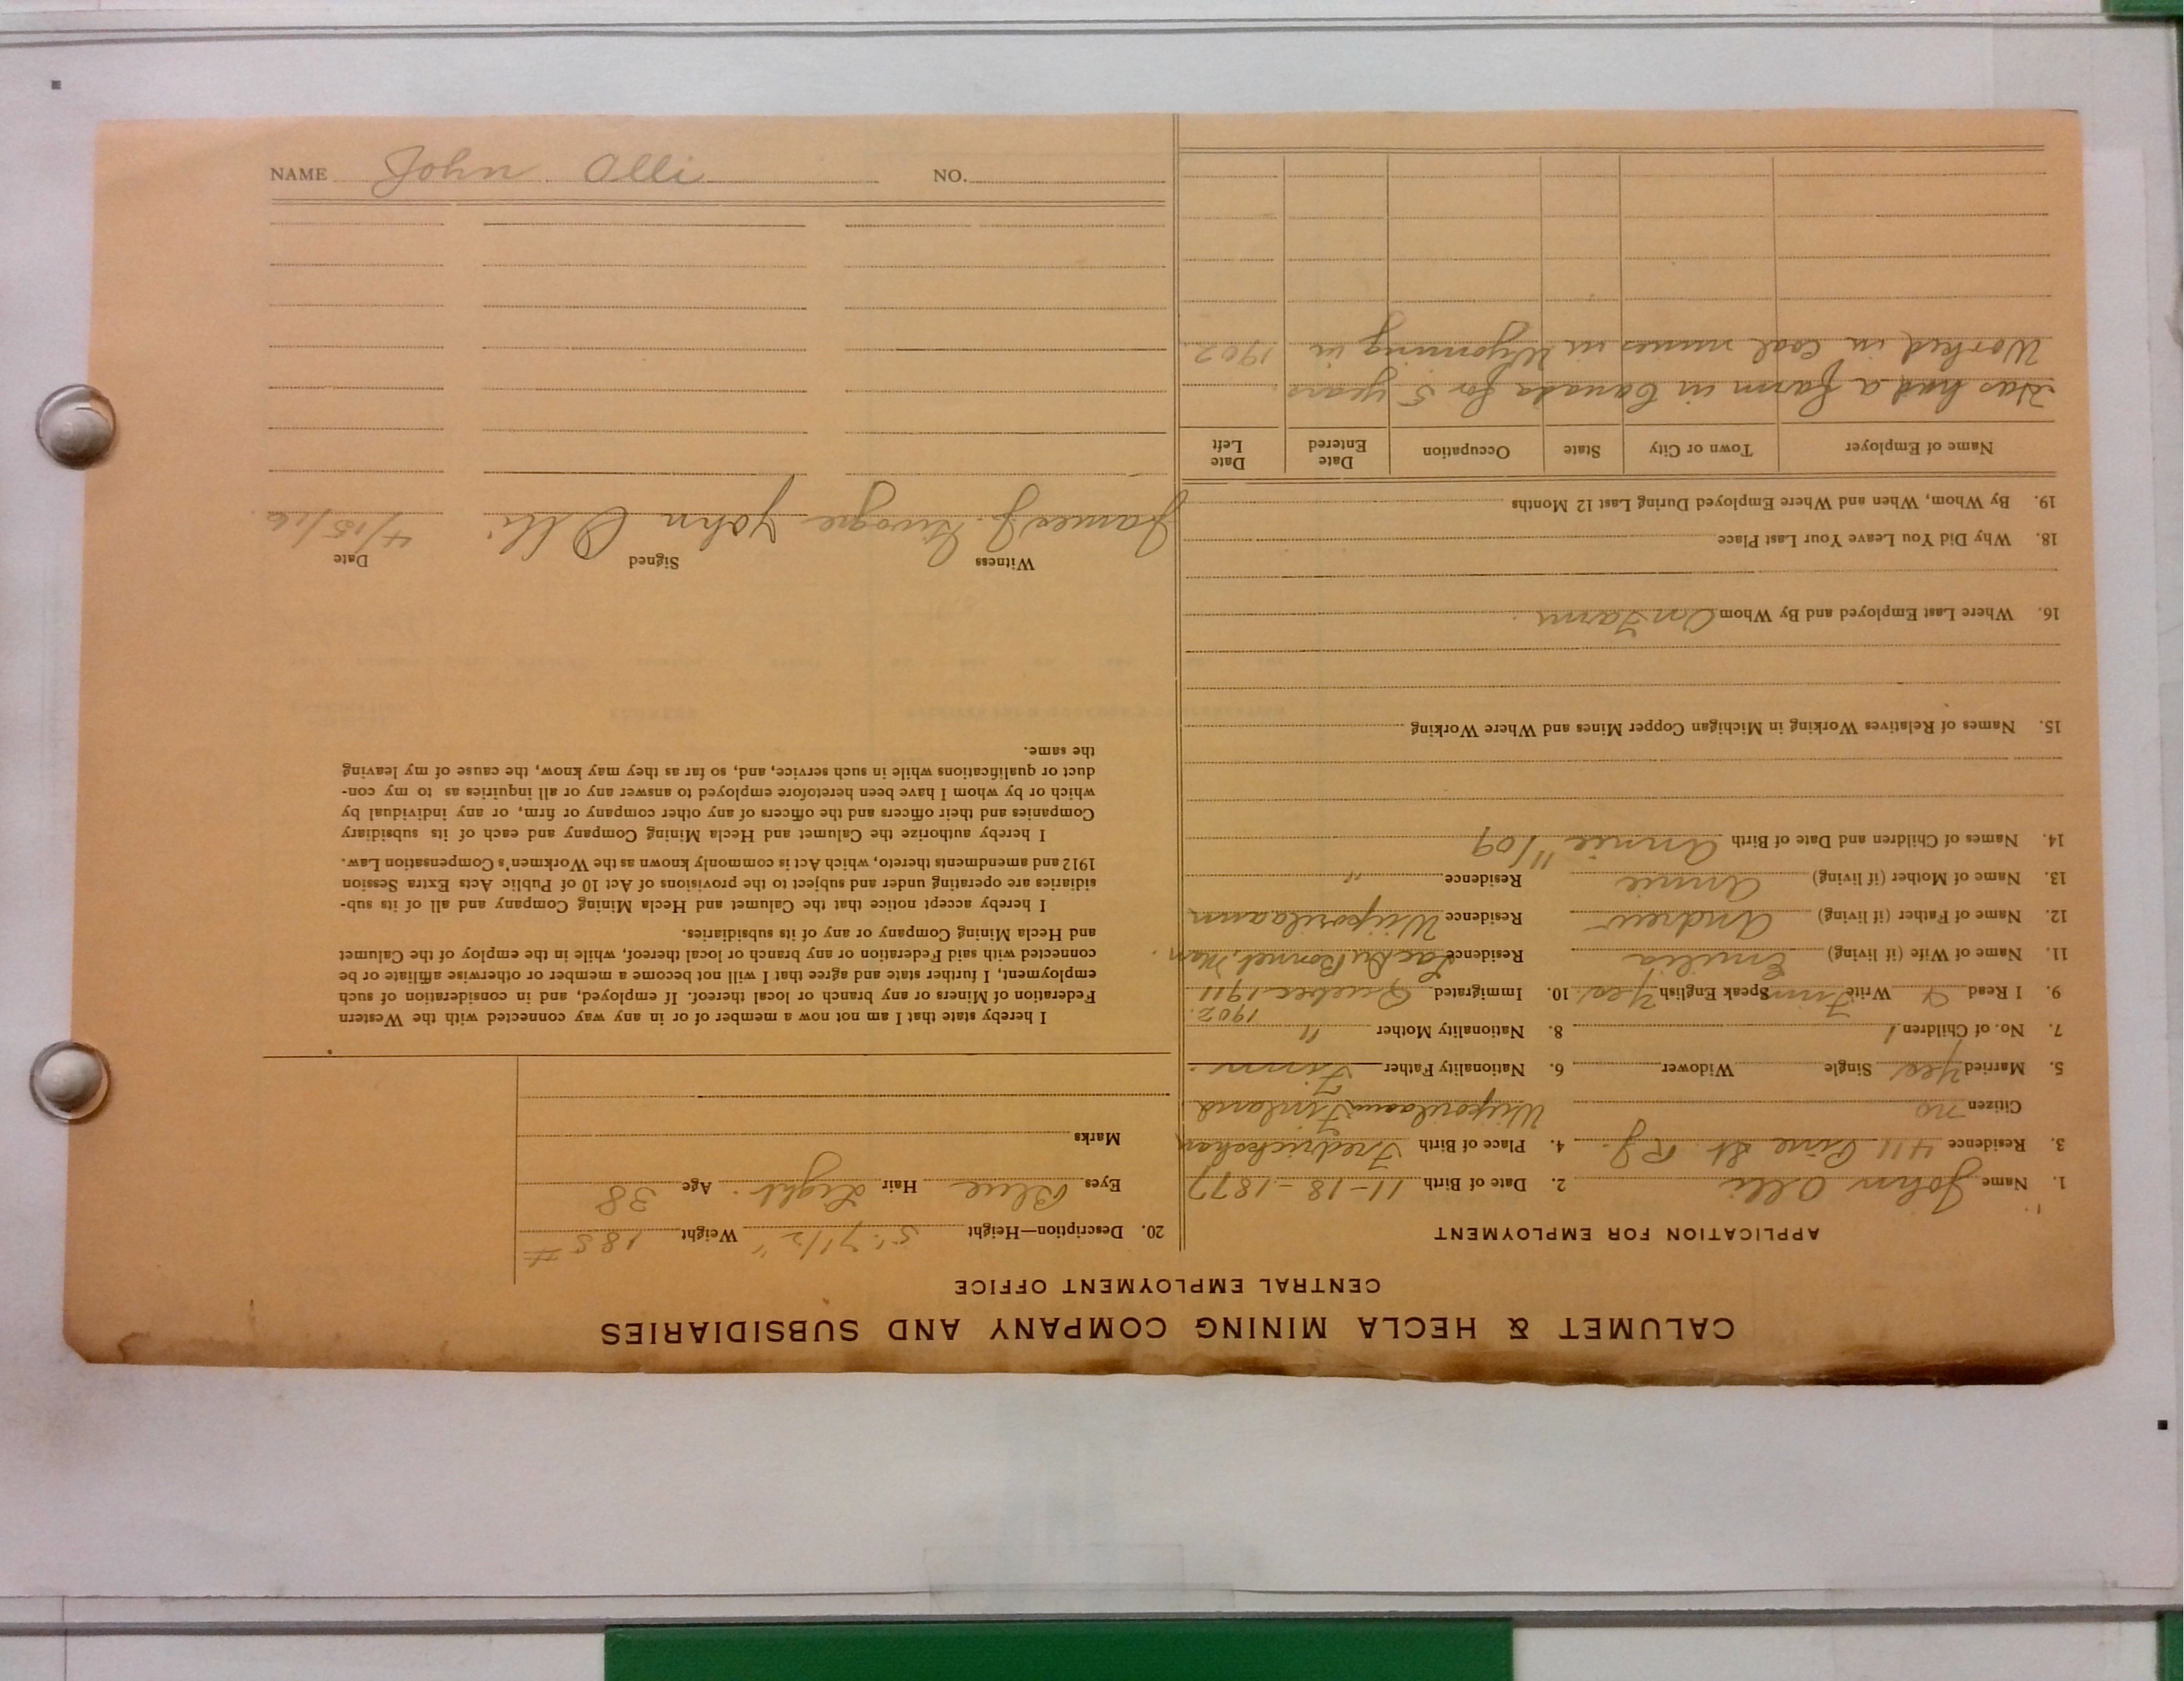 CALUMET & HECLA MINING COMPANY AND SUBSIDIARIES
CENTRAL EMPLOYMENT OFFICE
APPLICATION FOR EMPLOYMENT
1. Name John Olli 2. Date of Birth 11-18-1877
3. Residence 411 Pine St R.J. 4. Place of Birth Fredrickshan
Citizen no Wiiporilaani Finland
5. Married Yes Single Widower 6. Nationality Father Finn.
7. No. of Children 1 8. Nationality Mother "
1902.
9. I Read Y Write Finn Speak English Yes. 10. Immigrated Quebec-1911
11. Name of Wife (if living) Emilia Residence Lac Du Bonnet, Man.
12. Name of Father (if living) Andrew Residence Wiiporilaann
13. Name of Mother (if living) Annie Residence "
14. Names of Children and Date of Birth Annie 11/09
15. Names of Relatives Working in Michigan Copper Mines and Where Working
16. Where Last Employed and By Whom On Farm.
18. Why Did You Leave Your Last Place
19. By Whom, When and Where Employed During Last 12 Months
Name of Employer Town or City State Occupation Date Entered Date Left
Has had a farm in Canada for 5 years.
Worked in coal mines in Wyoming in 1902
20. Description—Height 5' 7 1/2" Weight 185 #
Eyes Blue Hair Light. Age 38
Marks
I hereby state that I am not now a member of or in any way connected with the Western
Federation of Miners or any branch or local thereof. If employed, and in consideration of such
employment, I further state and agree that I will not become a member or otherwise affiliate or be
connected with said Federation or any branch or local thereof, while in the employ of the Calumet
and Hecla Mining Company or any of its subsidiaries.
I hereby accept notice that the Calumet and Hecla Mining Company and all of its sub-
sidiaries are operating under and subject to the provisions of Act 10 of Public Acts Extra Session
1912 and amendments thereto, which Act is commonly known as the Workmen's Compensation Law.
I hereby authorize the Calumet and Hecla Mining Company and each of its subsidiary
Companies and their officers and the officers of any other company or firm, or any individual by
which or by whom I have been heretofore employed to answer any or all inquiries as to my con-
duct or qualifications while in such service, and, so far as they may know, the cause of my leaving
the same.
Witness Signed Date
James J. John Olli 4/15/16.
NAME John Olli NO.